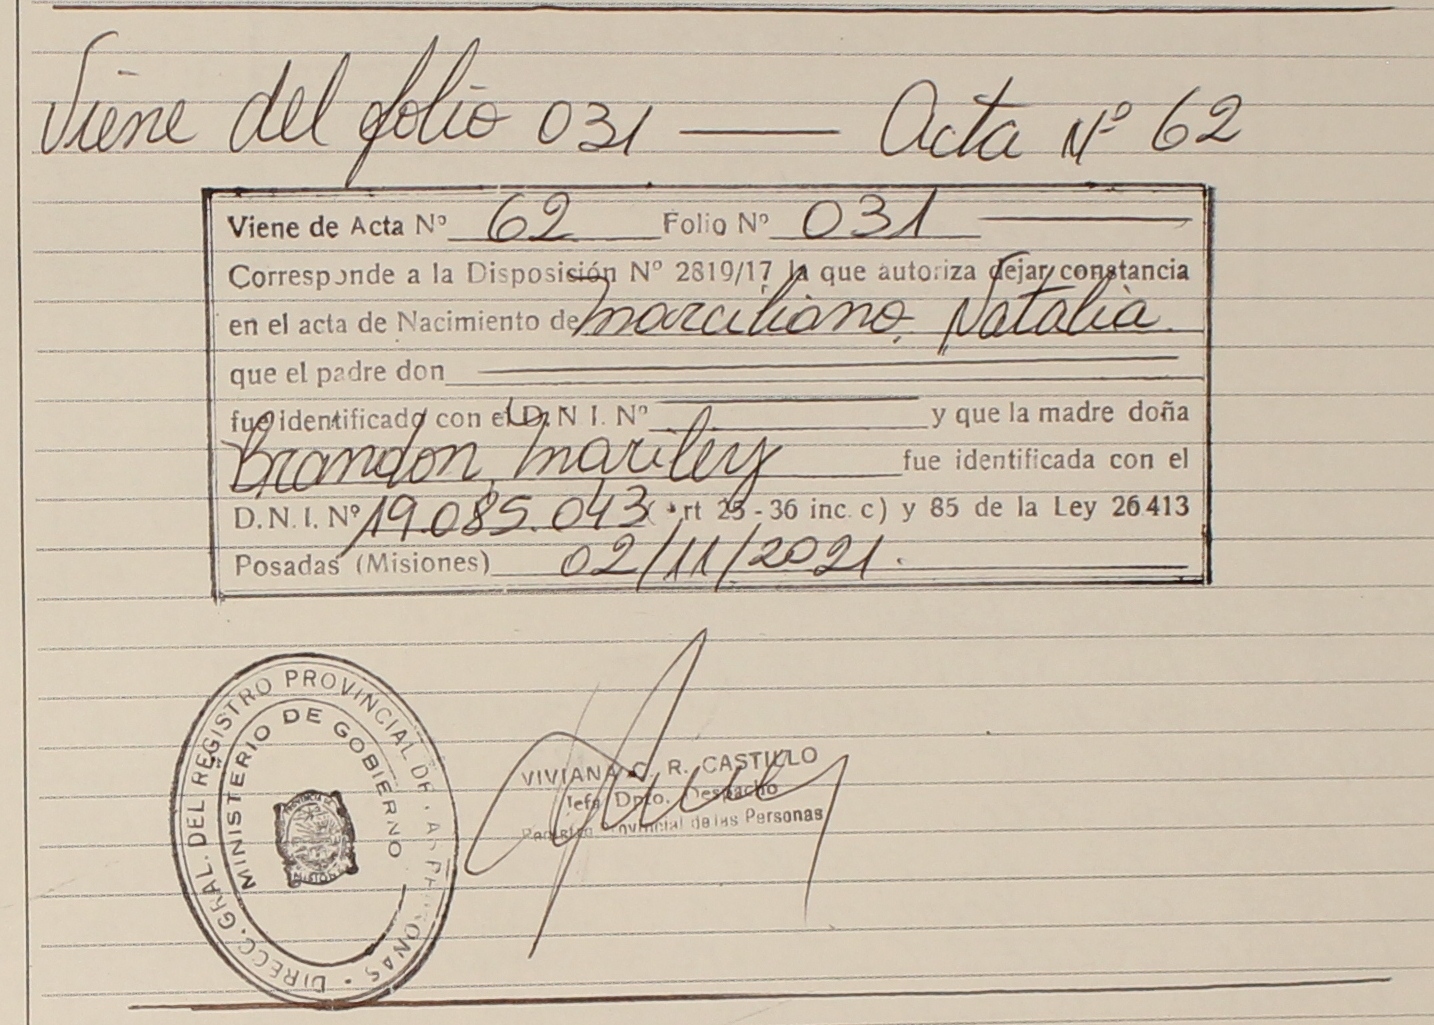 Viene del folio 031 — Acta Nº 62
Viene de Acta Nº 62 Folio Nº 031
Corresponde a la Disposición Nº 2819/17 la que autoriza dejar constancia
en el acta de Nacimiento de Marciliano, Natalia.
que el padre don
fue identificado con el D.N.I. Nº y que la madre doña
Brandon, Mariley fue identificada con el
D.N.I. Nº 19.085.043 (Art 25-36 inc. c) y 85 de la Ley 26413
Posadas (Misiones) 02/11/2021.
DIRECC. GRAL. DEL REGISTRO PROVINCIAL DE LAS PERSONAS
MINISTERIO DE GOBIERNO
VIVIANA C. R. CASTILLO
Jefe Dpto. Despacho
Registro Provincial de las Personas